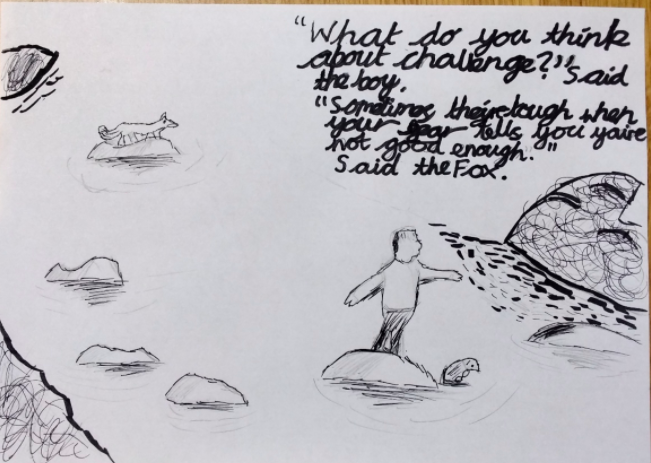 "What do you think
about challenge?" Said
the boy.
"Sometimes they're tough when
your fear tells you you're
not good enough."
Said the Fox.